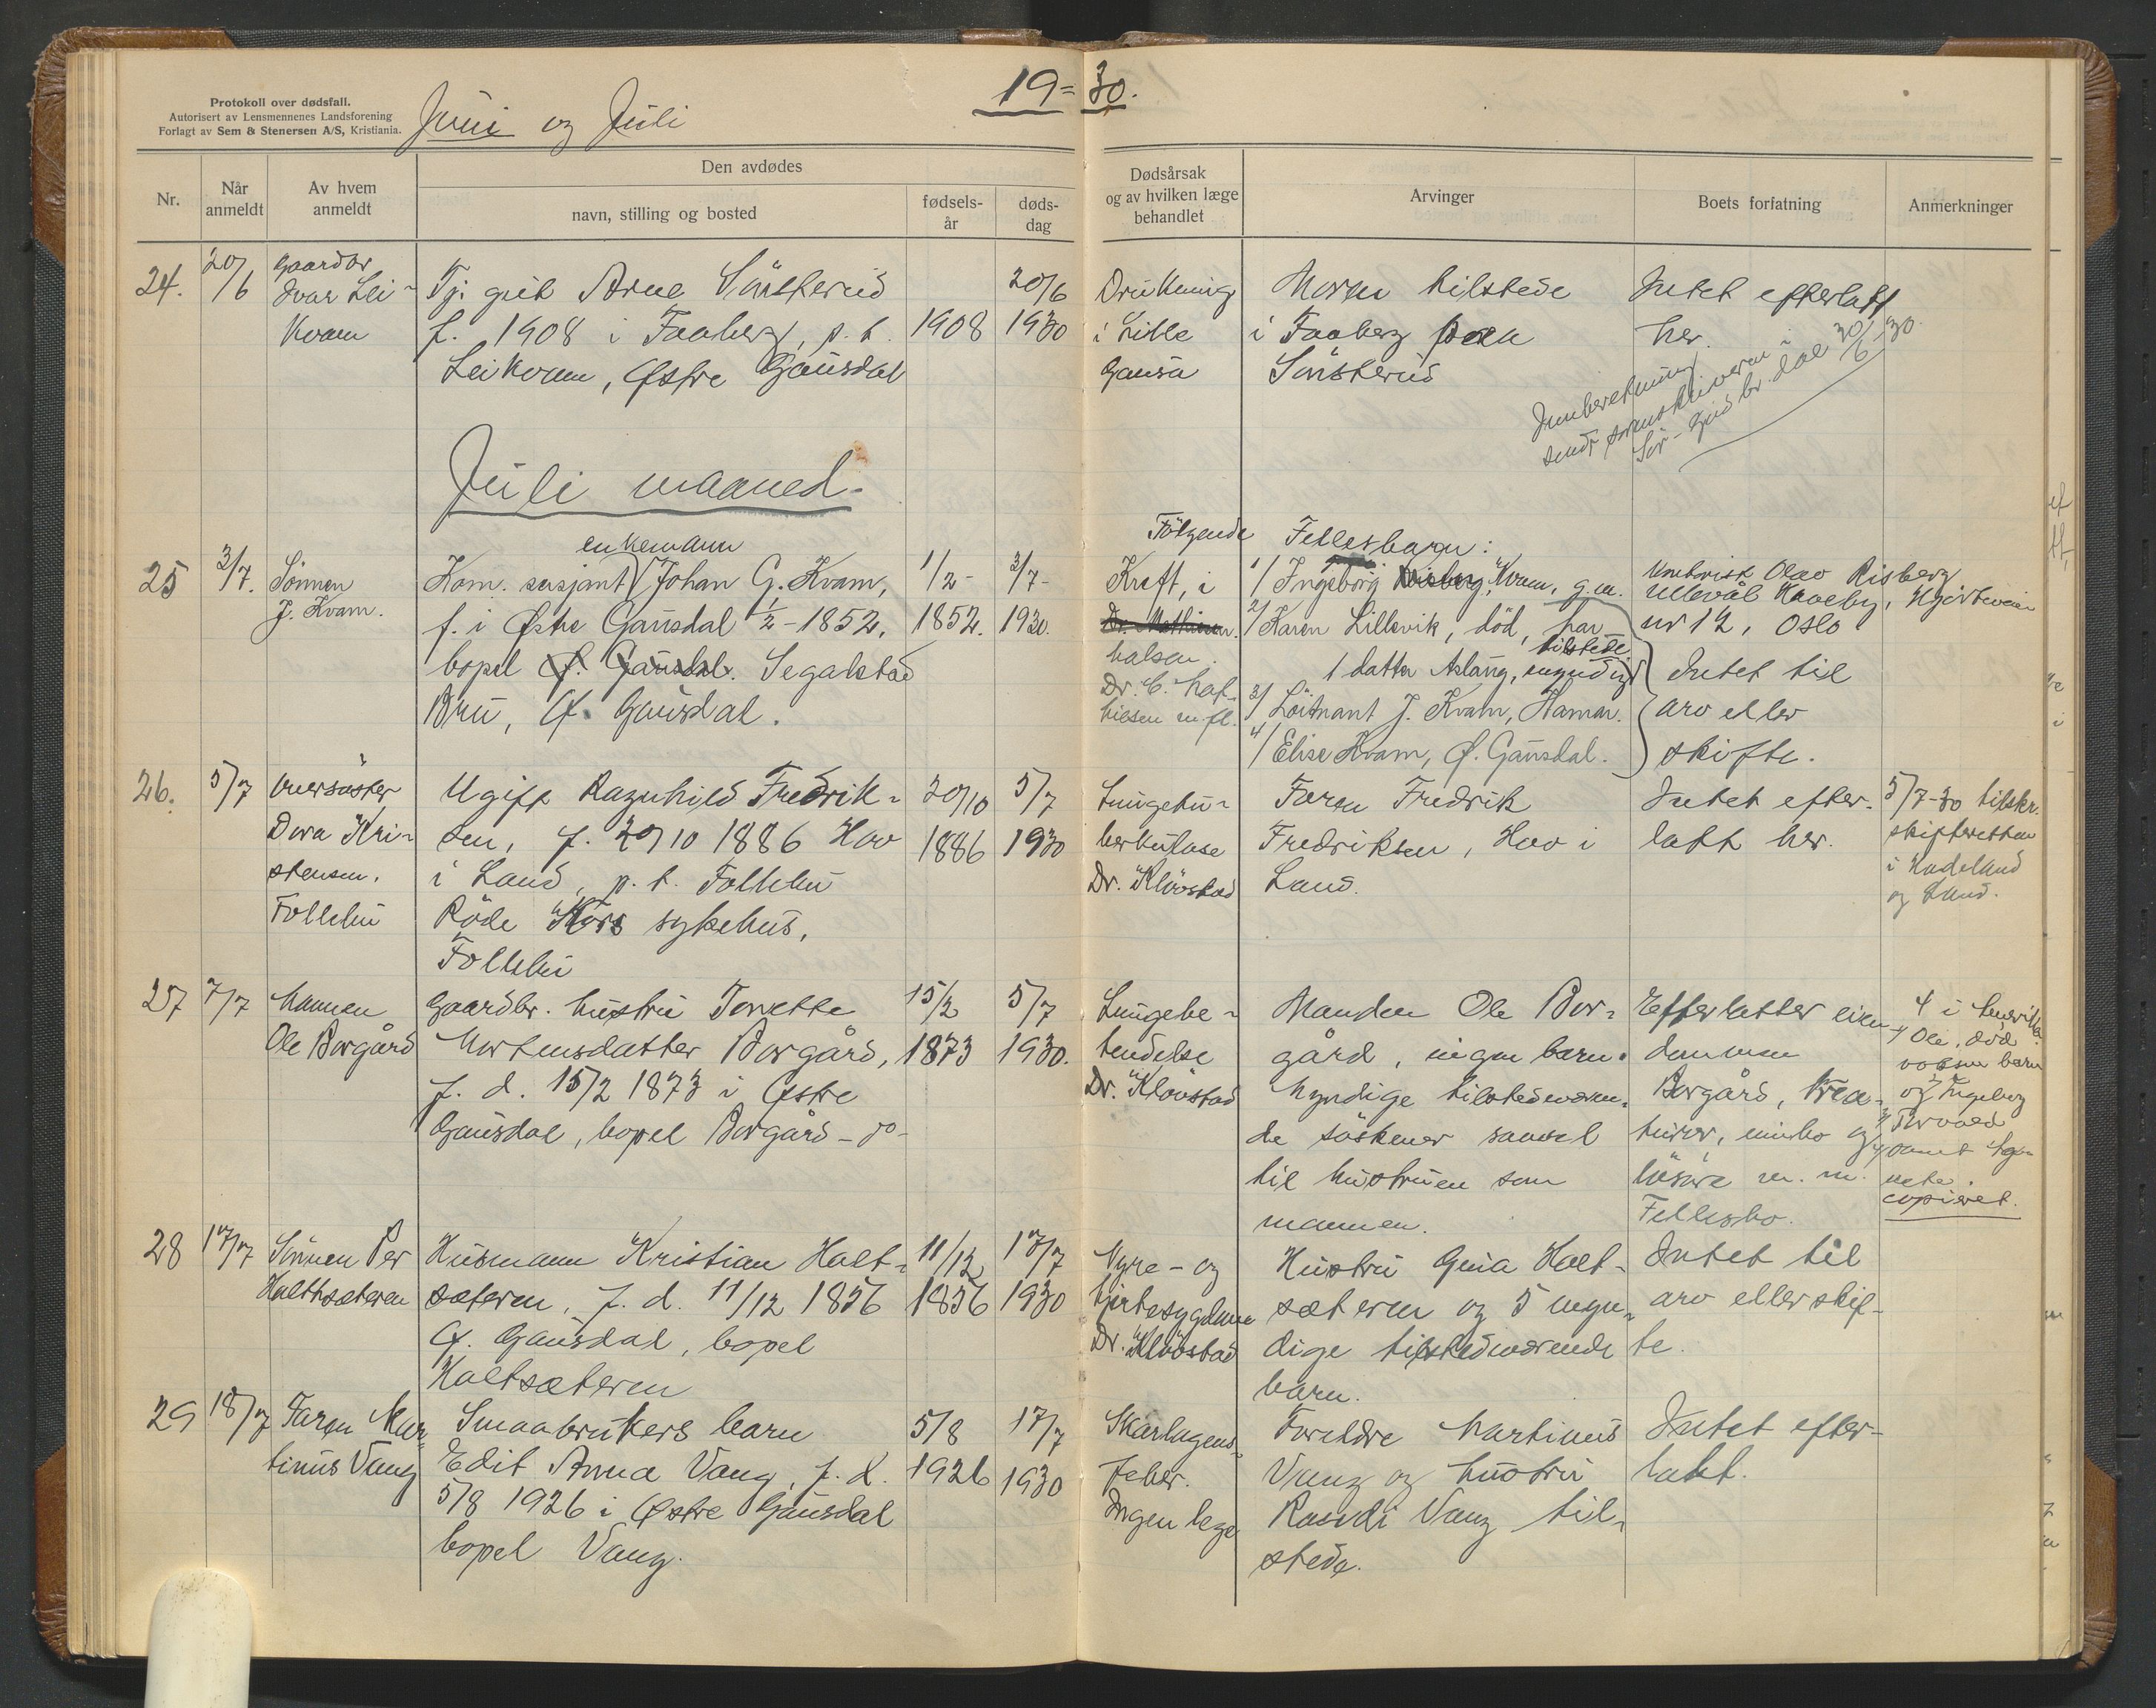 19=30.
Protokoll over dødsfall.
Autorisert av Lensmennenes Landsforening
Forlagt av Sem & Stenersen A/S, Kristiania.
Juni og Juli
Nr.
Når anmeldt
Av hvem anmeldt
Den avdødes
navn, stilling og bosted
fødsels-år
døds-dag
Dødsårsak
og av hvilken læge
behandlet
Arvinger
Boets forfatning
Anmerkninger
24.
20/6
Gaardbr
Ivar Lei-
Kvam
Tj. gut Arne Sönsterud
f. 1908 i Faaberg, p.t.
Leikvam, Østre Gausdal
1908
20/6
1930
Drukning
i Lille
Gausa
Moren tilstede
i Faaberg
Sönsterud
Intet efterlatt
her.
Innberetning
sendt sorenskriveren i
Sör-Gudbr.dal 30/6-30.
Juli maaned.
25
3/7.
Sönnen
J. Kvam.
enkemann
Kom. sersjant Johan G. Kvam,
f. i Østre Gausdal 1/2-1852,
bopel Ø. Gausdal. Segalstad
Bru, Ø. Gausdal.
1/2-
1852.
3/7-
1930.
Kreft, i
Dr. Mathiesen.
halsen.
Dr. C. Mat-
hiesen m.fl.
Følgende Fellesbarn:
1/ Ingeborg Risberg, Kvam, g.m.
2/ Karen Lillevik, död, har
tilstede
1 datter Aslaug, umyndig
3/ Löitnant J. Kvam, Hamar.
4/ Elise Kvam, Ø. Gausdal.
Olav Risberg
Ullevål Haveby,
nr 12, Oslo
Intet til
arv eller
skifte.
26.
5/7
Oversöster
Dora Kri-
stensen.
Follebu
Ugift Ragnhild Fredrik-
sen, f. 20/10 1886 Hov
i Land, p.t. Follebu
Röde Kors sykehus,
Follebu
20/10
1886
5/7
1930
Lungetu-
berkulose
Dr. Klövstad
Faren Fredrik
Fredriksen, Hov i
Land.
Intet efter-
latt her.
5/7-30 tilskr.
skifteretten
i Hadeland
og Land.
27
7/7
Mannen
Ole Borgård
Gaardbr. hustru Torette
Mortensdatter Borgård,
f. d. 15/2 1873 i Østre
Gausdal, bopel Borgård - do-
15/2
1873
5/7
1930.
Lungebe-
tendelse
Dr. Klövstad
Manden Ole Bor-
gård, ingen barn.
Myndige tilstedeværen-
de söskener såvel
til hustruen som
mannen.
Efterlatter eien-
dommen
Borgård, krea-
turer, innbo og
lösöre m. m.
Fellesbo.
4 i Amerika
1/ Ole, död
voksne barn
2/ Ingeborg
3/ Torvald
copieret.
28
17/7
Sönnen Per
Holthsæteren
Husmann Kristian Holt-
sæteren, f. d. 11/12 1856
Ø. Gausdal, bopel
Holtsæteren
11/12
1856
17/7
1930
Nyre- og
hjertesygdom
Dr. Klövstad
Hustru Gina Holt-
sæteren og 5 myn-
dige tilstedeværende
barn.
Intet til
arv eller skif-
te.
29
18/7
Faren Mar-
tinus Vang
Smaabrukers barn
Edit Anna Vang, f. d.
5/8 1926 i Østre Gausdal
bopel Vang.
5/8
1926
17/7
1930
Skarlagens-
feber.
Ingen lege
Foreldre Martinus
Vang og hustru
Randi Vang til-
stede.
Intet efter-
latt.